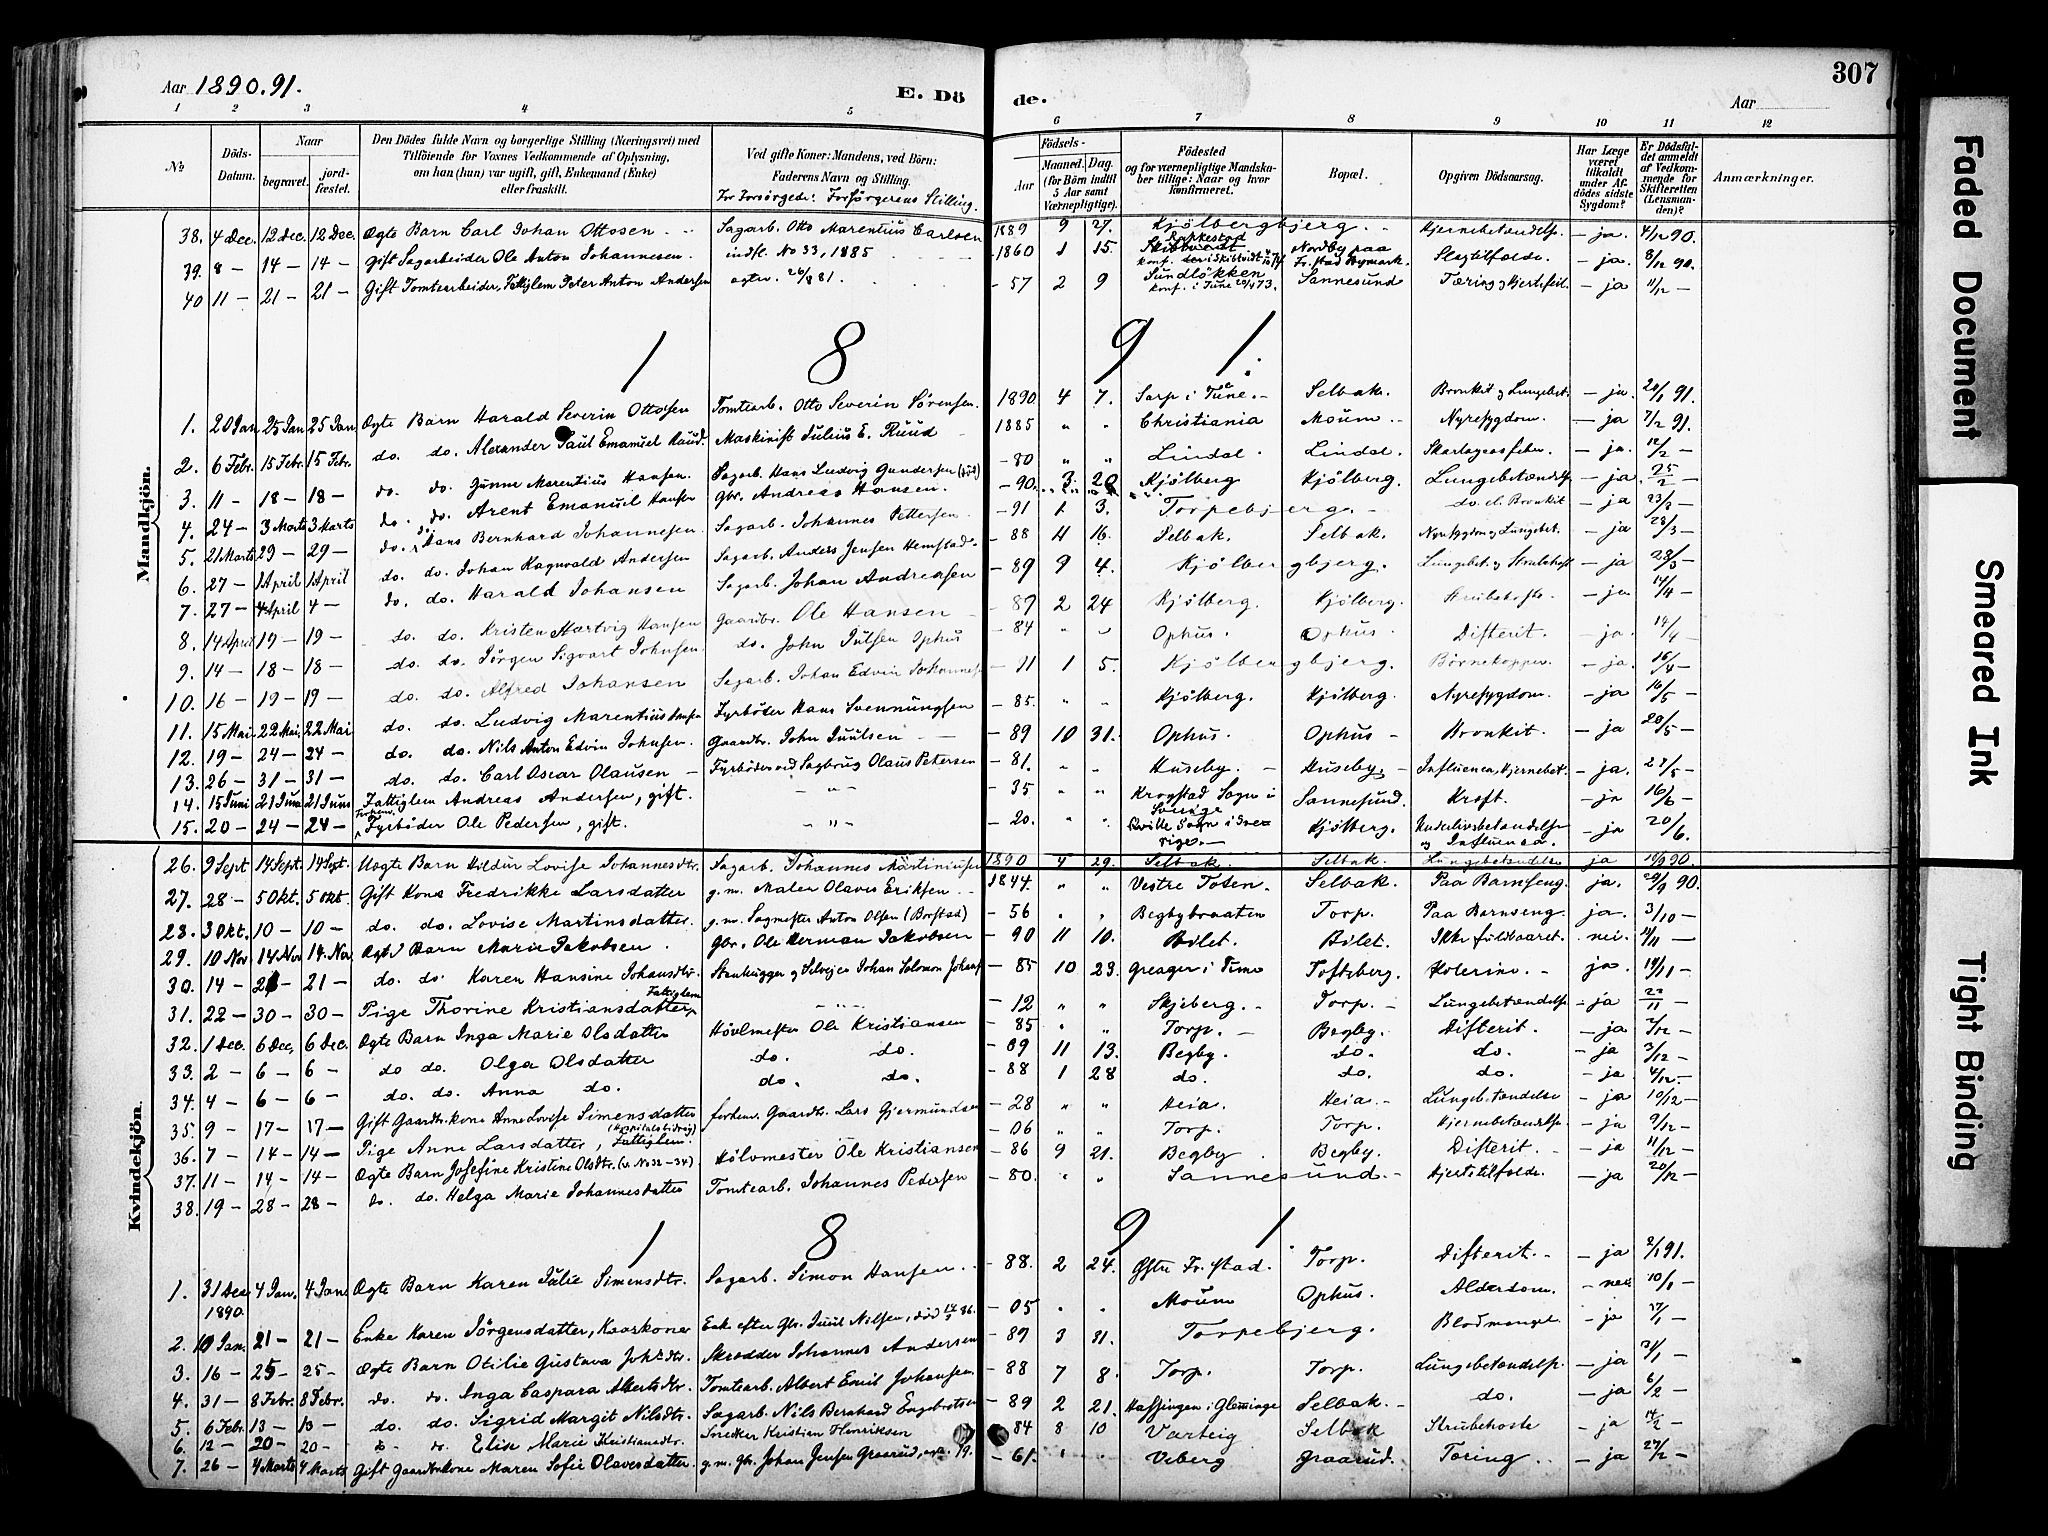 307
Aar 1890.91.
E. Dö de.
Aar
1 2 3 4 5 6 7 8 9 10 11 12
№
Döds-Datum.
Naar
begravet.
jord-fæstet.
Den Dödes fulde Navn og borgerlige Stilling (Næringsvei) med
Tilföiende for Voxnes Vedkommende af Oplysning,
om han (hun) var ugift, gift, Enkemand (Enke)
eller fraskilt.
Ved gifte Koner: Mandens, ved Börn:
Faderens Navn og Stilling.
For Forsörgede: Forsörgerens Stilling.
Födsels-
Aar
Maaned. Dag.
(for Börn indtil
5 Aar samt
Værnepligtige).
Födested
og for værnepligtige Mandska-
ber tillige: Naar og hvor
konfirmeret.
Bopæl.
Opgiven Dödsaarsag.
Har Læge
været
tilkaldt
under Af-
dödes sidste
Sygdom?
Er Dödsfal-
det anmeldt
af Vedkom-
mende for
Skifteretten
(Lensman-
den)?
Anmærkninger.
Mandkjön.
38. 4 Dec. 12 Dec. 12 Dec. Ægte Barn Carl Johan Ottosen Sagarb. Otto Marentius Carlsen 1889 9 27. Kjölbergbjerg. Hjernebetændelse. - ja. 4/12 90.
39. 8 - 14 - 14 - Gift Sagarbeider Ole Anton Johannesen. indfl. No 33, 1885 1860 1 15. Rakkestad Nordby paa Fr.stad Bymark. Slagtilfælde. - ja. 8/12 90.
40 11 - 21 - 21 - Gift Tomtearbeider, Fattiglem Peter Anton Andersen - 57 2 9 Sundlökken konf. i Tune 73. Sannesund Tæring og Hjertefeil. - ja 11/12 -
1 8 9 1.
1. 20 Jan 25 Jan 25 Jan Ægte Barn Harald Severin Ottosen Tomtearb. Otto Severin Sörensen. 1890. 4 7. Sarp i Tune. Selbak. Bronkit og Lungebet. - ja 20/1 91.
2. 6 Febr. 15 Febr. 15 Febr. do. do. Alexander Paul Emanuel Ruud. Maskinist Julius E. Ruud 1885 " " Christiania Moum Nyresygdom. - ja 7/2 91.
3. 11 - 18 - 18 - do. do. Gunne Marentius Hansen. Sagarb. Hans Ludvig Gundersen (död) - 80 " " Lindal. Lindal. Skarlagensfeber. - ja. 12/2 -
4. 24 - 3 Marts 3 Marts do. do. Arent Emanuel Hansen gbr. Andreas Hansen. - 90. 3. 20 Kjölberg Kjölberg. Lungebetændelse - ja. 25/2 -
5. 21 Marts 29 - 29 - do. do. Hans Bernhard Johannesen. Sagarb. Johannes Pettersen. - 91 1 3. Torpebjerg. do. el. Bronkit - ja 23/3 -
6. 27 - 1 April 1 April do. do. Johan Ragnvald Andersen Sagarb. Anders Jensen Hemstad. - 88 4 16. Selbak. Selbak. Nyresygdom og Lungebet. - ja 28/3 -
7. 27 - 4 April 4 - do. do. Harald Johansen Sagarb. Johan Andreasen - 89 9 4. Kjölbergbjerg. Lungebet. og Strubehoste - ja 28/3 -
8. 14 April 19 - 19 - do. do. Kristen Hartvig Hansen gaardbr. Ole Hansen - 87 2 24 Kjölberg. Kjölberg. Strubehoste. - ja 14/4 -
9. 14 - 18 - 18 - do. do. Jörgen Sigvart Johnsen. do. John Juulsen Ophus - 84 " " Ophus. Ophus. Difterit. - ja. 14/4 -
10. 16 - 19 - 19 - do. do. Alfred Johansen Sagarb. Johan Edvin Johannesen - 91 1 5. Kjölbergbjerg. Börnekopper. - ja. 16/4 -
11. 15 Mai. 22 Mai. 22 Mai do. do. Ludvig Marentius Fyrböder Hans Svenningsen - 85. " " Kjölberg. Kjölberg. Nyresygdom. - ja 16/5 -
12. 19 - 24 - 24 - do. do. Nils Anton Edvin Johnsen. Gaardbr. John Juulsen - 89 10 31. Ophus. Ophus - Bronkit. - ja 20/5 -
13. 26 - 31 - 31 - do. do. Carl Oscar Olausen - Fyrböder ved Sagbrug Olaus Petersen - 81. " " Huseby. - Huseby. Influenca, Hjernebet. - ja. 27/5 -
14. 15 Juni 21 Juni 21 Juni Fattiglem Andreas Andersen, gift. - " - - 35 " " Krogstad Sogn i Sverige Sannesund. Kræft. - ja 16/6 -
15. 20 - 24 - 24 - Forhenv. Fyrböder Ole Pedersen, gift. - " - - 20. " " Kville Sogn i Sverige. Kjölberg. Underlivsbetændelse og Influenca. - ja 20/6.
Kvindekjön.
26. 9 Sept 14 Sept. 14 Sept. Uægte Barn Hildur Lovise Johannesdtr. Sagarb. Johannes Martiniusen 1890 4 29. Selbak. Selbak. Lungebetændelse ja 10/9 90.
27. 28 - 5 Okt. 5 Okt. Gift Kone Fredrikke Larsdatter g.m. Maler Olaves Eriksen. 1844. " " Vestre Toten. Selbak. Paa Barnseng. ja. 29/9 90.
28. 3 Okt. 10 - 10 - do. do. Lovise Martinsdatter. g.m. Sagmester Anton Olsen (Borstad) - 56 " " Begbybraaten Torp. Paa Barnseng. ja. 3/10 -
29. 10 Nov 14 Nov 14. Nov Ægte Barn Marie Jakobsen. Gbr. Ole Herman Jakobsen - 90 11 10. Bilet. Bilet. Ikke fuldbaaret. nei. 11/11 -
30. 14 - 21 - 21 - do. do. Karen Hansine Johansdtr. Stenhugger og Selveier Johan Solomon Johans. - 85 10 23. Greager i Tune Tofteberg. Kolerine. - ja. 14/11 -
31. 22 - 30 - 30 - Pige Thorine Kristiansdatter, Fattiglem - " - - 12 " " Skjeberg. Torp. Lungebetændelse - ja 22/11 -
32. 1 Dec. 6 Dec. 6 Dec. Ægte Barn Inga Marie Olsdatter Hövlmester Ole Kristiansen - 85 " " Torp. Begby. Difterit. - ja 2/12 -
33. 2 - 6 - 6 - do do. Olga Olsdatter do. do. - 89 11 13. Begby. do. do. - ja 3/12 -
34. 4 - 6 - 6 - do. do. Anna do. do. do. - 88 1 28 do. do. do. - ja 4/12. -
35. 9 - 17 - 17 - Gift Gaardbr.kone Anne Lovise Simensdatter forhenv. Gaardbr. Lars Gjermundsen - 28 " " Heia. Heia. - Lungebetændelse - ja 10/12 -
36. 7 - 14 - 14 - Pige Anne Larsdatter, Fattiglem. (Hospitalsbidrag) - 06 " " Torp. Torp. Hjernebetændelse. - ja 9/12 -
37. 11 - 14 - 14 - Ægte Barn Josefine Kristine Olsdtr. (v. No 32-34) Hölvmester Ole Kristiansen - 86 9 21. Begby. Begby. Difterit. - ja 11/12 -
38. 19 - 28 - 28 - do. do. Helga Marie Johannesdatter Tomtearb. Johannes Pedersen - 80. " " Sannesund. - Hjertetilfælde. - ja 20/12 -
1 8 9 1
1. 31 Dec 1890. 4 Jan. 4 Jan. Ægte Barn Karen Julie Simensdtr. Sagarb. Simon Hansen. - 88. 2 24. Östre Fr.stad. Torp. Difterit. - ja 2/1 91.
2. 10 Jan. 21 - 21 - Enke Karen Jörgensdatter, Kaarkone Enke efter Gbr. Juul Nilsen, död 86. - 05 " " Moum Ophus. Alderdom. - nei 10/1 -
3. 16 - 25 - 25 - Ægte Barn Otilie Gustava Johsdtr. Skrædder Johannes Andersen - 89 3 31. Torpebjerg. Blodmangel. - ja 17/1 -
4. 31 - 8 Febr. 8 Febr. do. do. Inga Caspara Albertsdtr. Tomtearb. Albert Emil Johansen - 88 7 8. Torp. Torp. Lungebetændelse. - ja 31/1 -
5. 6 Febr. 13 - 13 - do. do. Sigrid Margit Nilsdtr. Sagarb. Nils Bernhard Engebretsen - 89 2 21. Hassingen i Glemminge Selbak. - do. - ja 6/2 -
6. 12 - 20 - 20 - do. do. Elise Marie Kristiansdtr. Snedker Kristian Henriksen - 84 8 10 Varteig Selbak Strubehoste - ja 14/2 -
7. 26 - 4 Marts 4 Marts Gift Gaardbr.kone Maren Sofie Olavesdatter. g.m. Gbr. Johan Jensen Graarud, 19. - 61. " " Viberg Graarud. Tæring. - ja 27/2 -
Faded Document
Smeared Ink
Tight Binding